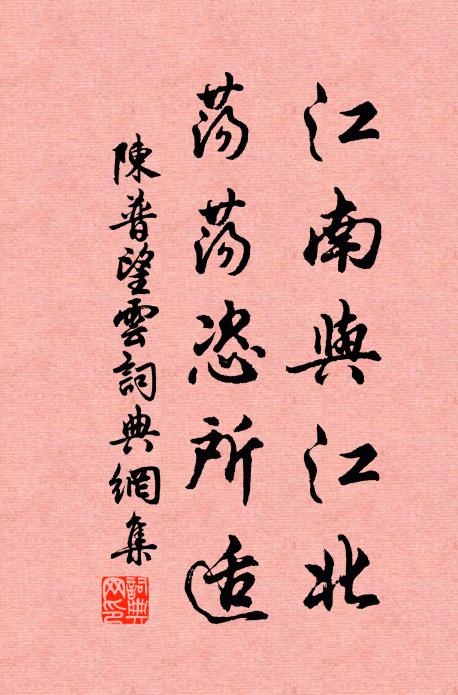 江南與江北
蕩蕩恣所适
陳普望雲詞典網集
詞典网印